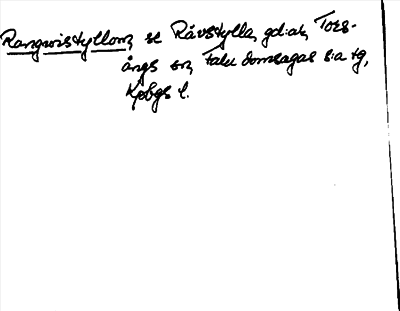 Rangwistyllom, se Råvstylla, gd:ar, Tors-
ångs sn, Falu domsagas s:a tg,
Kpbgs l.